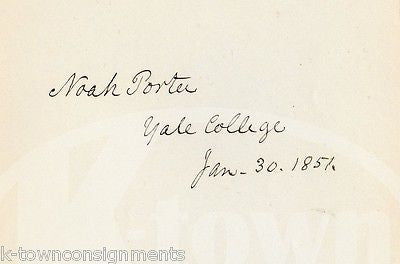 Noah Porter
Yale College
Jan - 30. 1851.
k-town
k-townconsignments